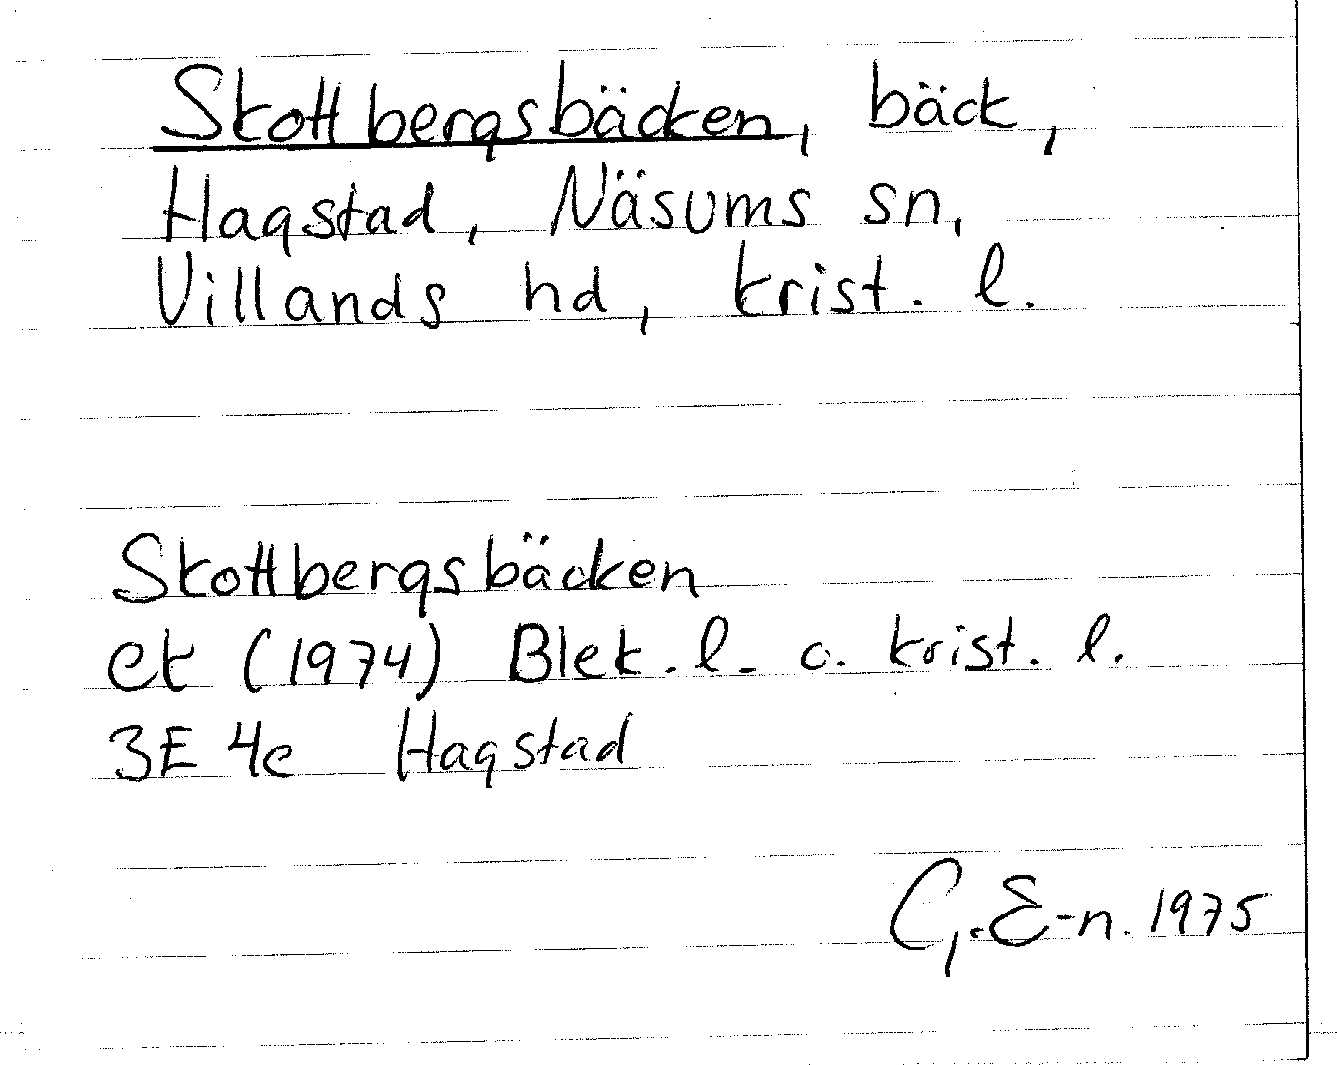 Skottbergsbäcken, bäck,
Hagstad, Näsums sn,
Villands hd, krist. l.
Skottbergsbäcken
ek (1974) Blek. l. o. krist. l.
3E 4c Hagstad
G. E-n. 1975